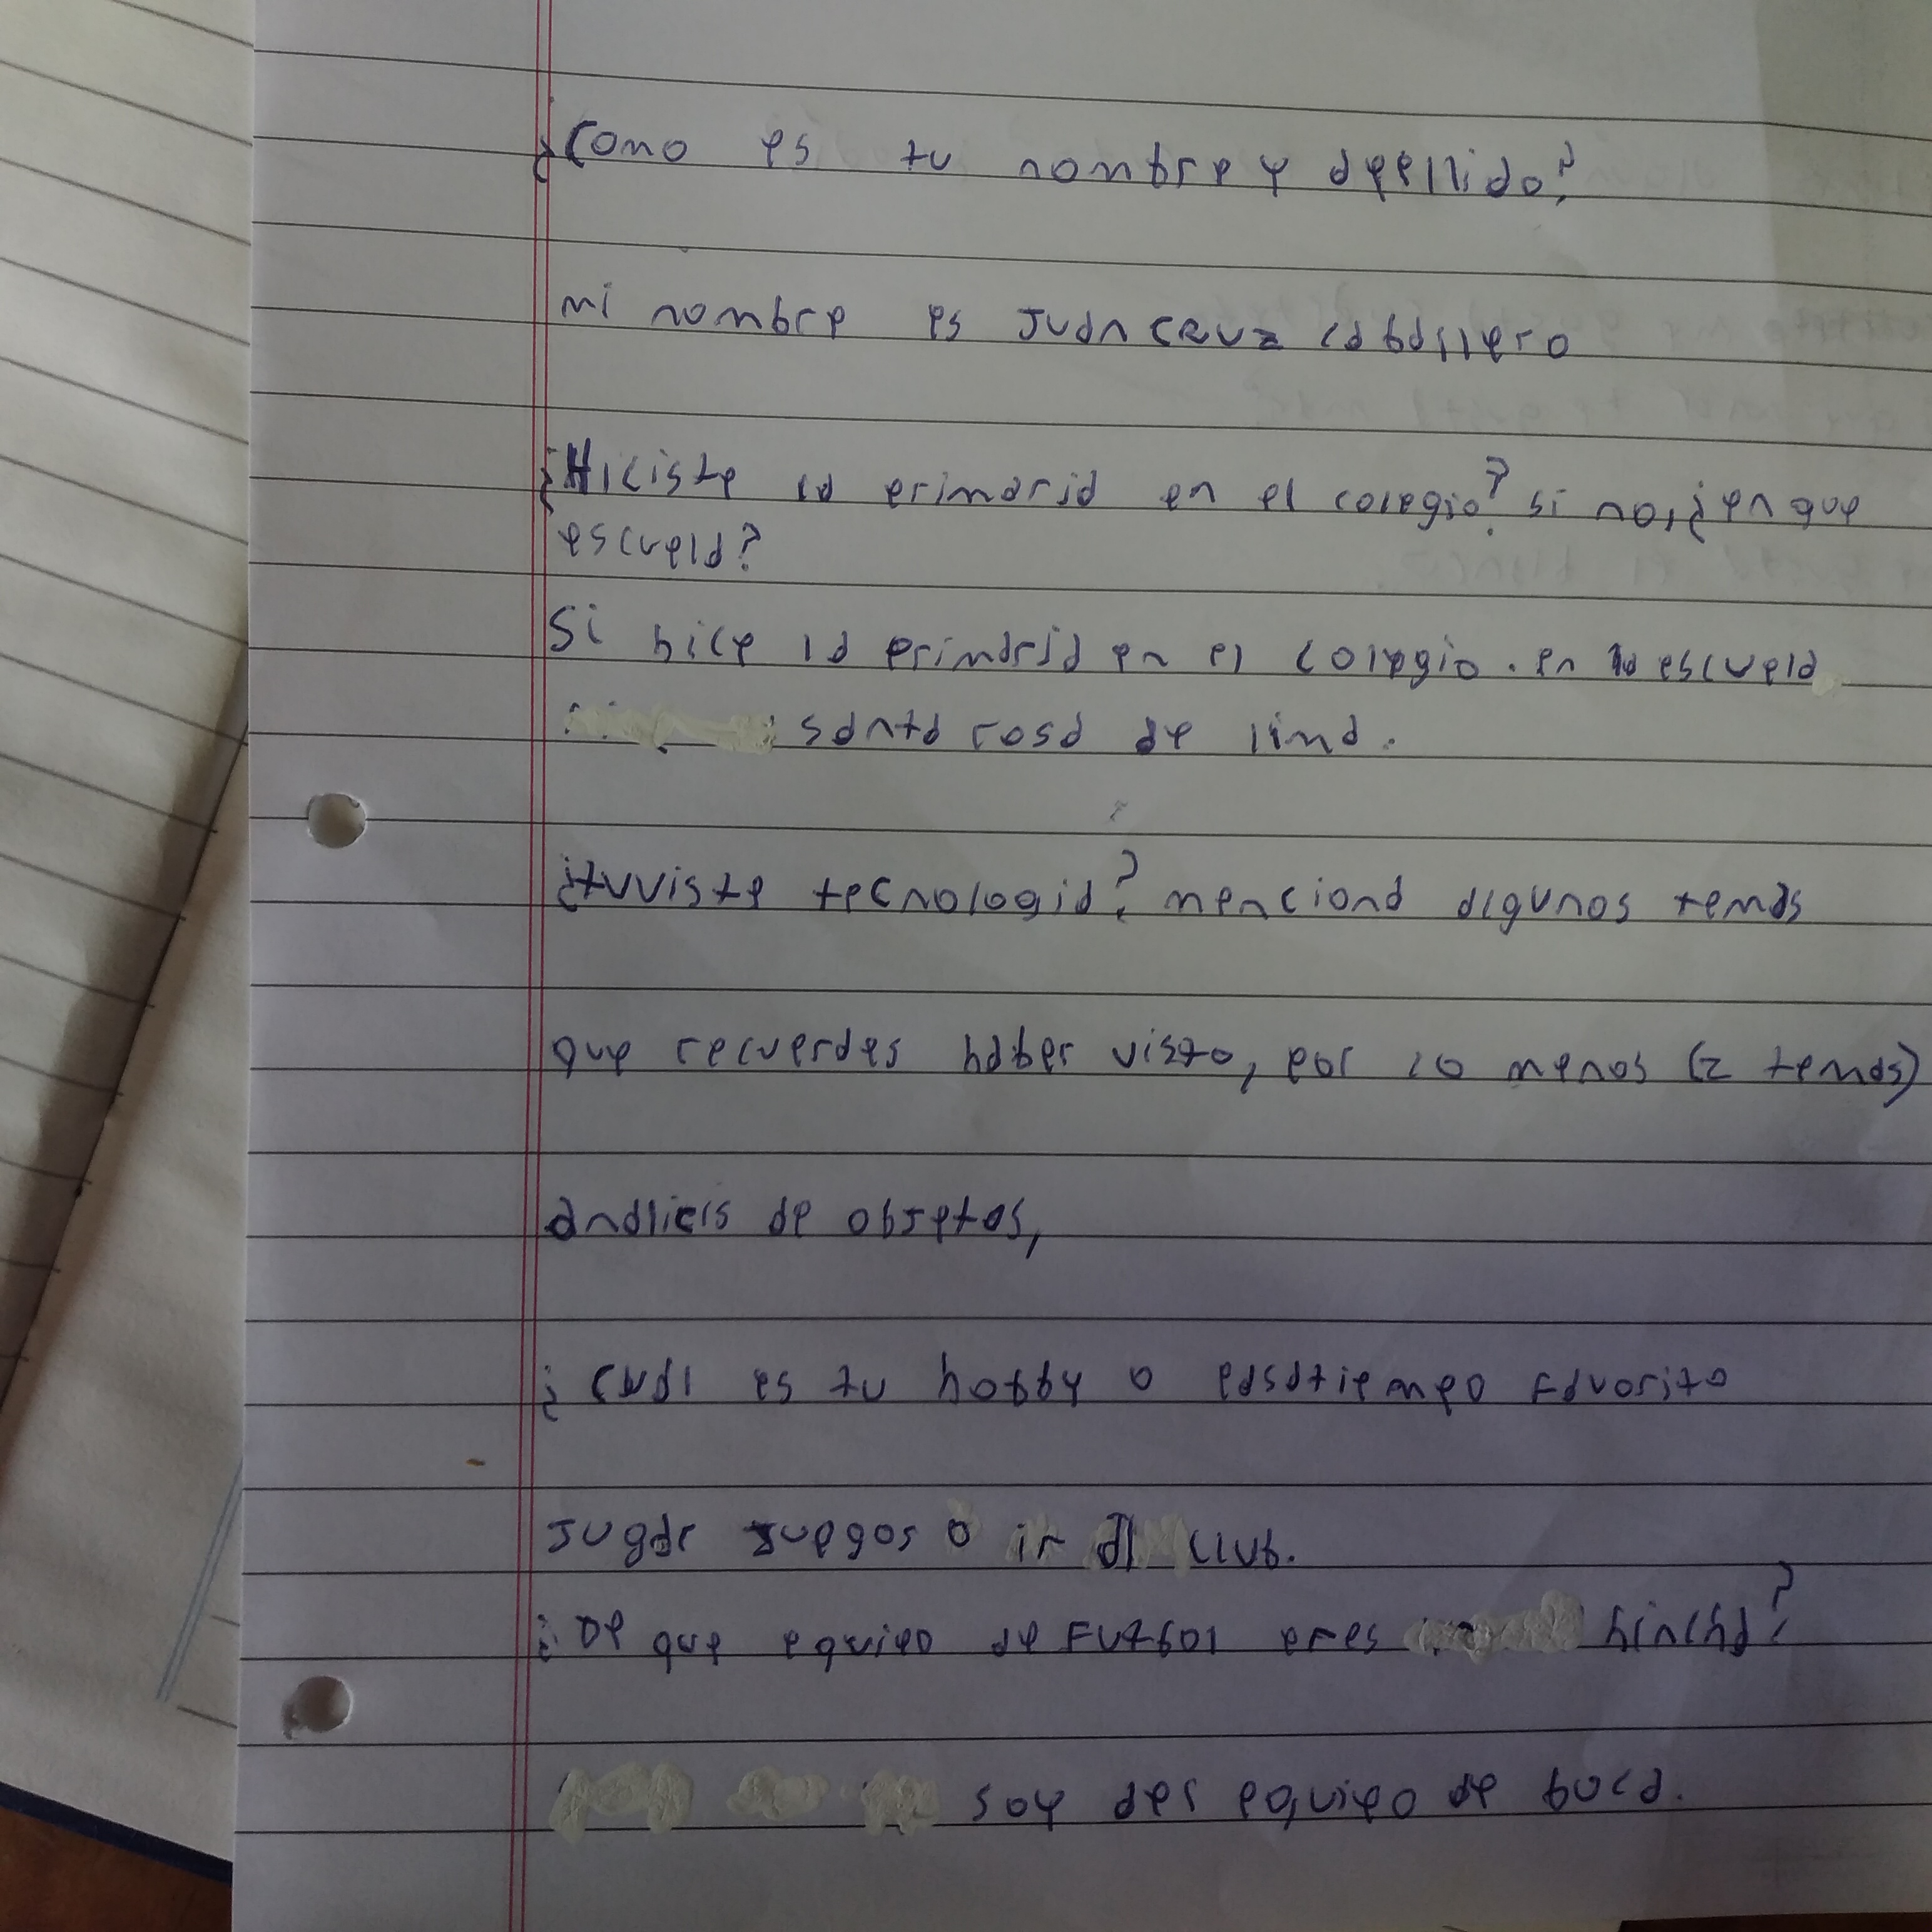 ¿Como es tu nombre y apellido?
mi nombre es Juan CRUZ caballero
¿Hiciste la primaria en el colegio? si no, ¿en que
escuela?
Si hice la primaria en el colegio. en la escuela
santa rosa de lima.
¿tuviste tecnologia? menciona algunos temas
que recuerdes haber visto, por lo menos (2 temas)
analicis de objetos,
¿cual es tu hobby o pasatiempo favorito
Jugar Juegos o ir al club.
¿De que equipo de Futbol eres hincha?
soy del equipo de boca.